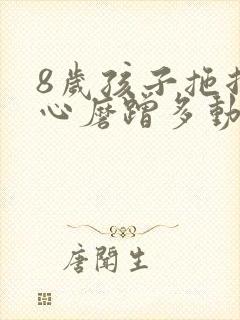 8歲孩子拖
心磨蹭多動
唐聞生